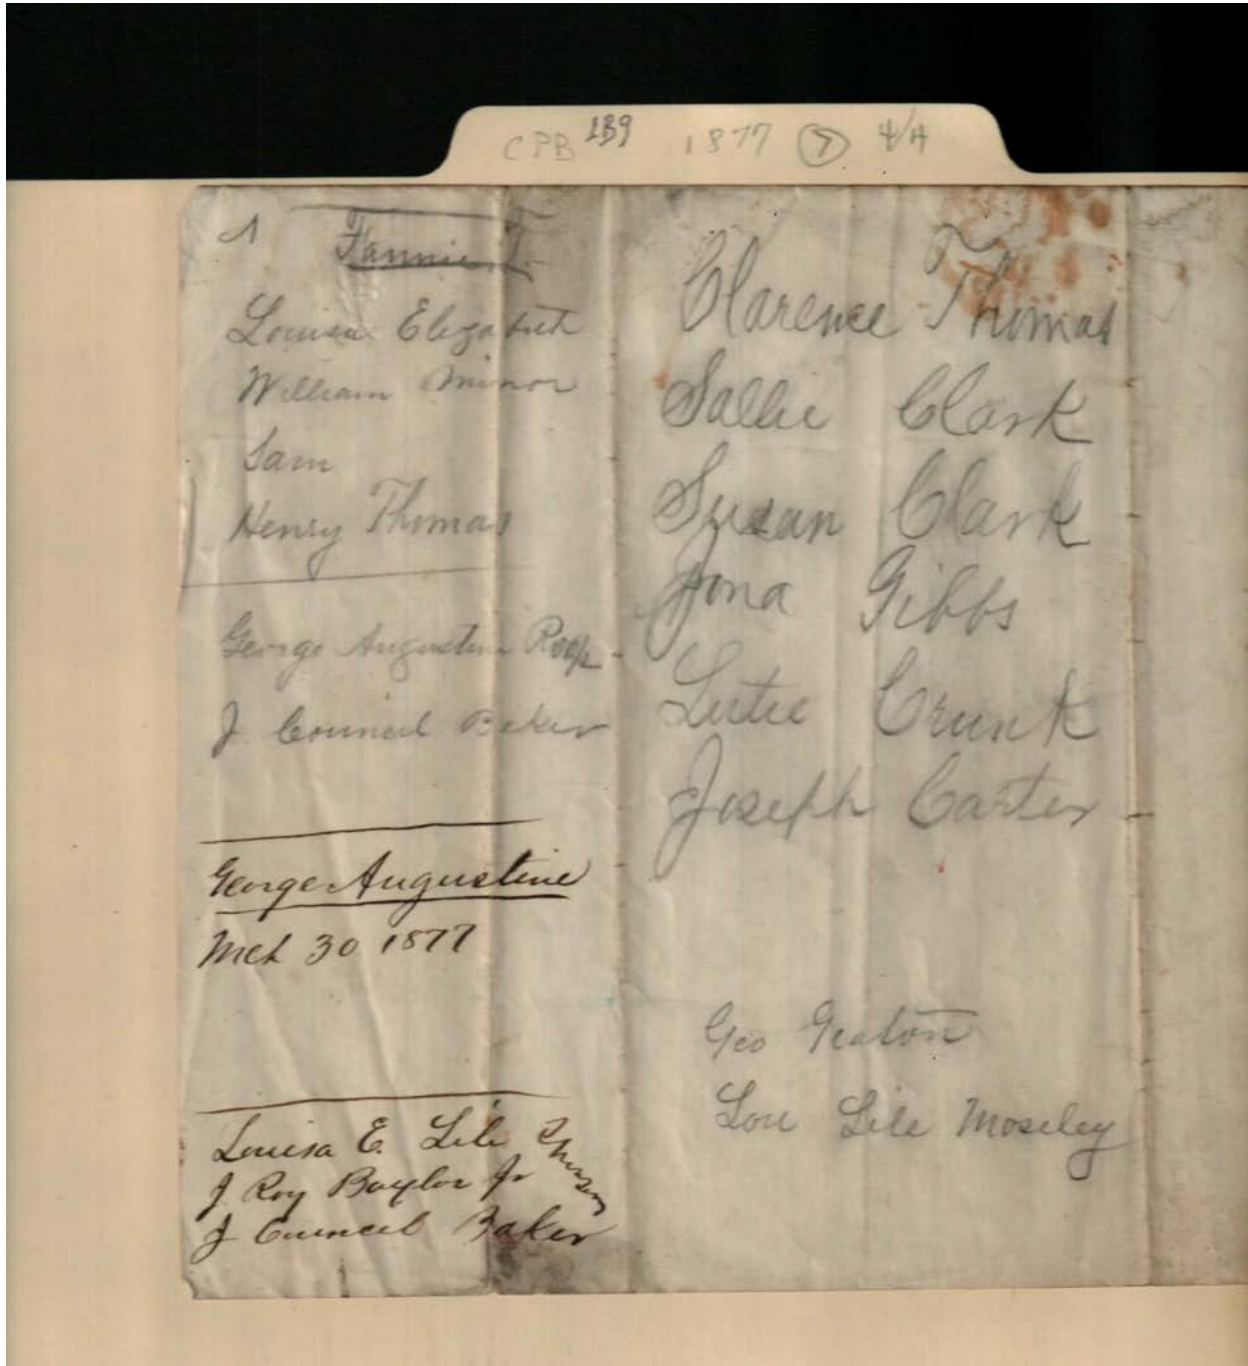 CPB 1B9 1877 7 4/4
Fannie T.
Louisa Elizabeth
William Minor
Sam
Henry Thomas
George Augustine Roop
J Council Baker
George Augustine
Mch 30 1877
Louisa E. Lile
J Roy Baylor Jr
J Council Baker
Clarence Thomas
Sallie Clark
Susan Clark
Jona Gibbs
Lutie Crunk
Joseph Carter
Geo Geaton
Lou Lile Moseley